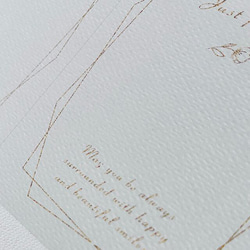 Just
May you be always
surrounded with happy
and beautiful smile